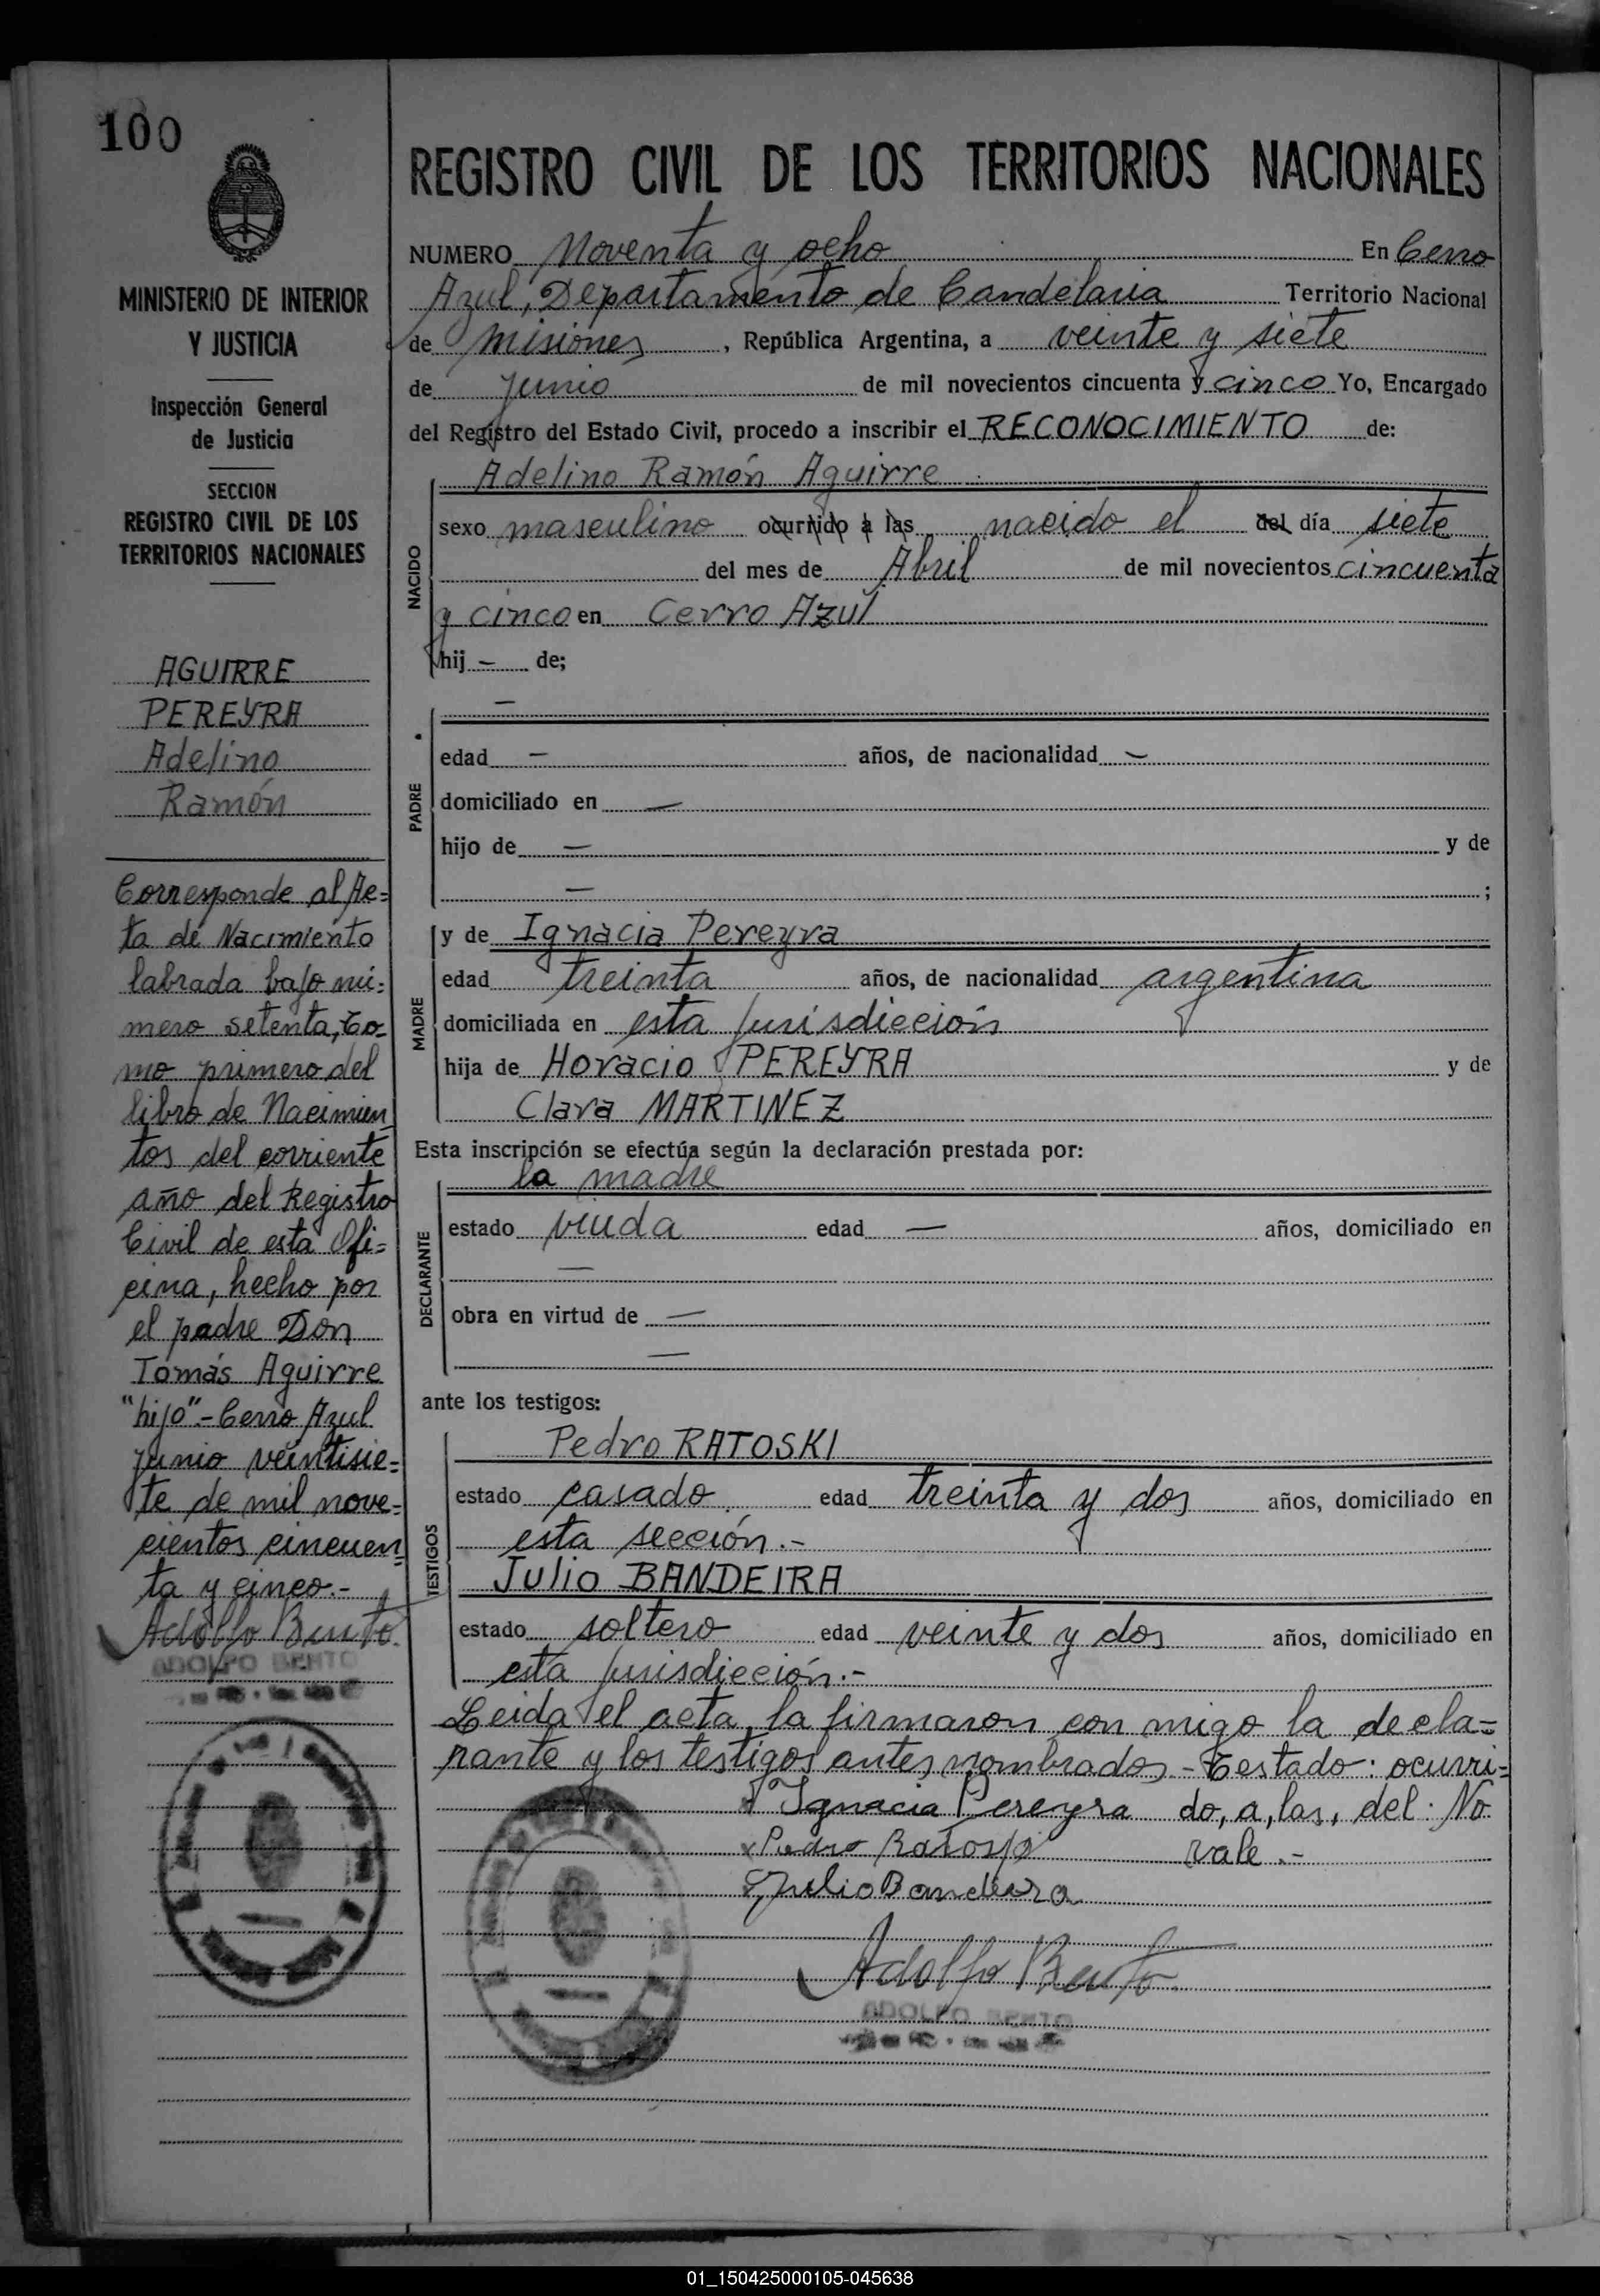 100
MINISTERIO DE INTERIOR
Y JUSTICIA
Inspección General
de Justicia
SECCION
REGISTRO CIVIL DE LOS
TERRITORIOS NACIONALES
AGUIRRE
PEREYRA
Adelino
Ramón
Corresponde al Ac=
ta de Nacimiento
labrada bajo nú=
mero setenta, to=
mo primero del
libro de Nacimien
tos del corriente
año del Registro
Civil de esta Ofi=
cina, hecho por
el padre Don
Tomás Aguirre
"hijo".- Cerro Azul
junio veintisie=
te de mil nove=
cientos cincuen=
ta y cinco.-
Adolfo Bento
ADOLFO BENTO
REGISTRO CIVIL DE LOS TERRITORIOS NACIONALES
NUMERO Noventa y ocho En Cerro
Azul, Departamento de Candelaria Territorio Nacional
de Misiones, República Argentina, a veinte y siete
de junio de mil novecientos cincuenta y cinco Yo, Encargado
del Registro del Estado Civil, procedo a inscribir el RECONOCIMIENTO de:
Adelino Ramón Aguirre
NACIDO
sexo masculino ocurrido a las nacido el del día siete
del mes de Abril de mil novecientos cincuenta
y cinco en Cerro Azul
hij - de;
-
PADRE
edad - años, de nacionalidad -
domiciliado en -
hijo de - y de
- ;
MADRE
y de Ignacia Pereyra
edad treinta años, de nacionalidad argentina
domiciliada en esta jurisdicción
hija de Horacio PEREYRA y de
Clara MARTINEZ
Esta inscripción se efectúa según la declaración prestada por:
la madre
DECLARANTE
estado viuda edad - años, domiciliado en
-
obra en virtud de -
-
ante los testigos:
TESTIGOS
Pedro RATOSKI
estado casado edad treinta y dos años, domiciliado en
esta sección.-
Julio BANDEIRA
estado soltero edad veinte y dos años, domiciliado en
esta jurisdicción.-
Leida el acta, la firmaron con migo la decla=
rante y los testigos antes nombrados - Testado: ocurri=
Ignacia Pereyra do, a, las, del. No
x Pedro Ratoski vale.-
Julio Bandeira
Adolfo Bento
ADOLFO BENTO
01_150425000105-045638